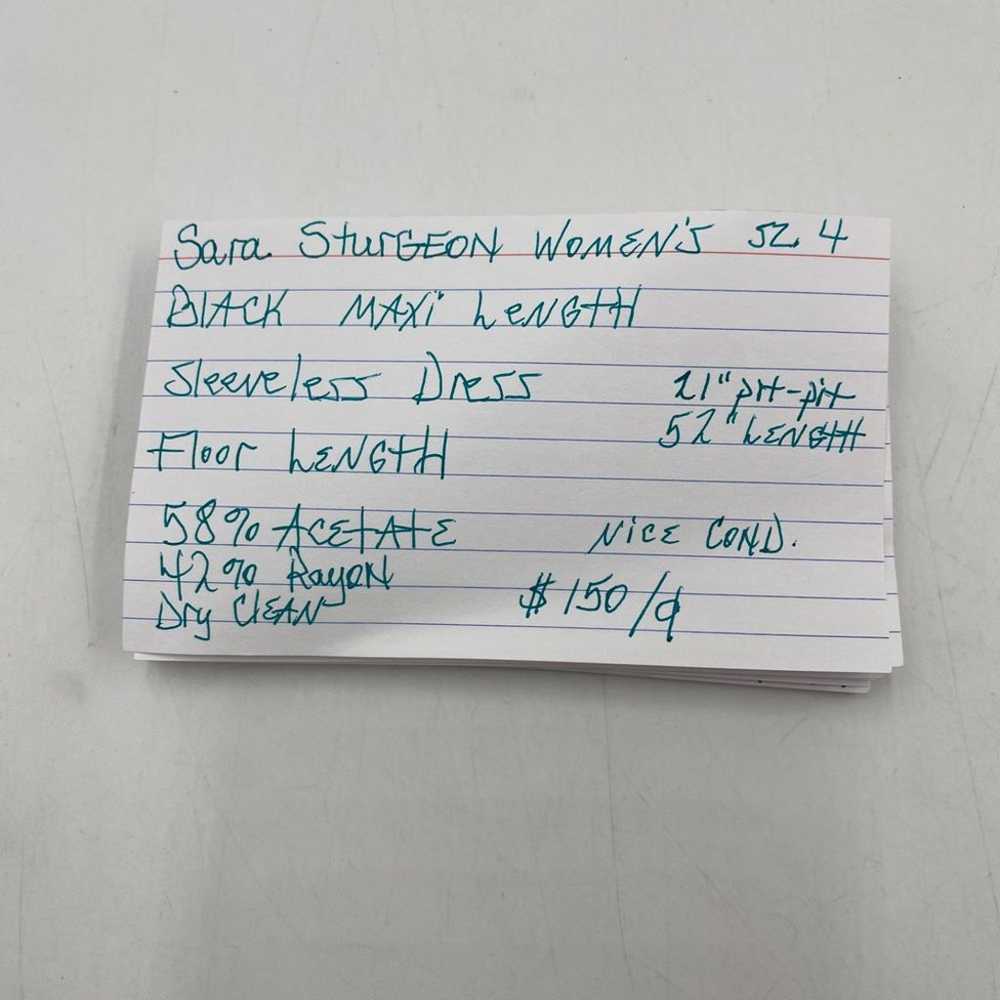 Sara STURGEON WOMEN'S SZ 4
BLACK MAXi LENGTH
Sleeveless Dress
21" pit-pit
52" LENGTH
Floor LENGTH
58% ACETATE
NiCE COND.
42% RayoN
Dry ClEAN
$150/